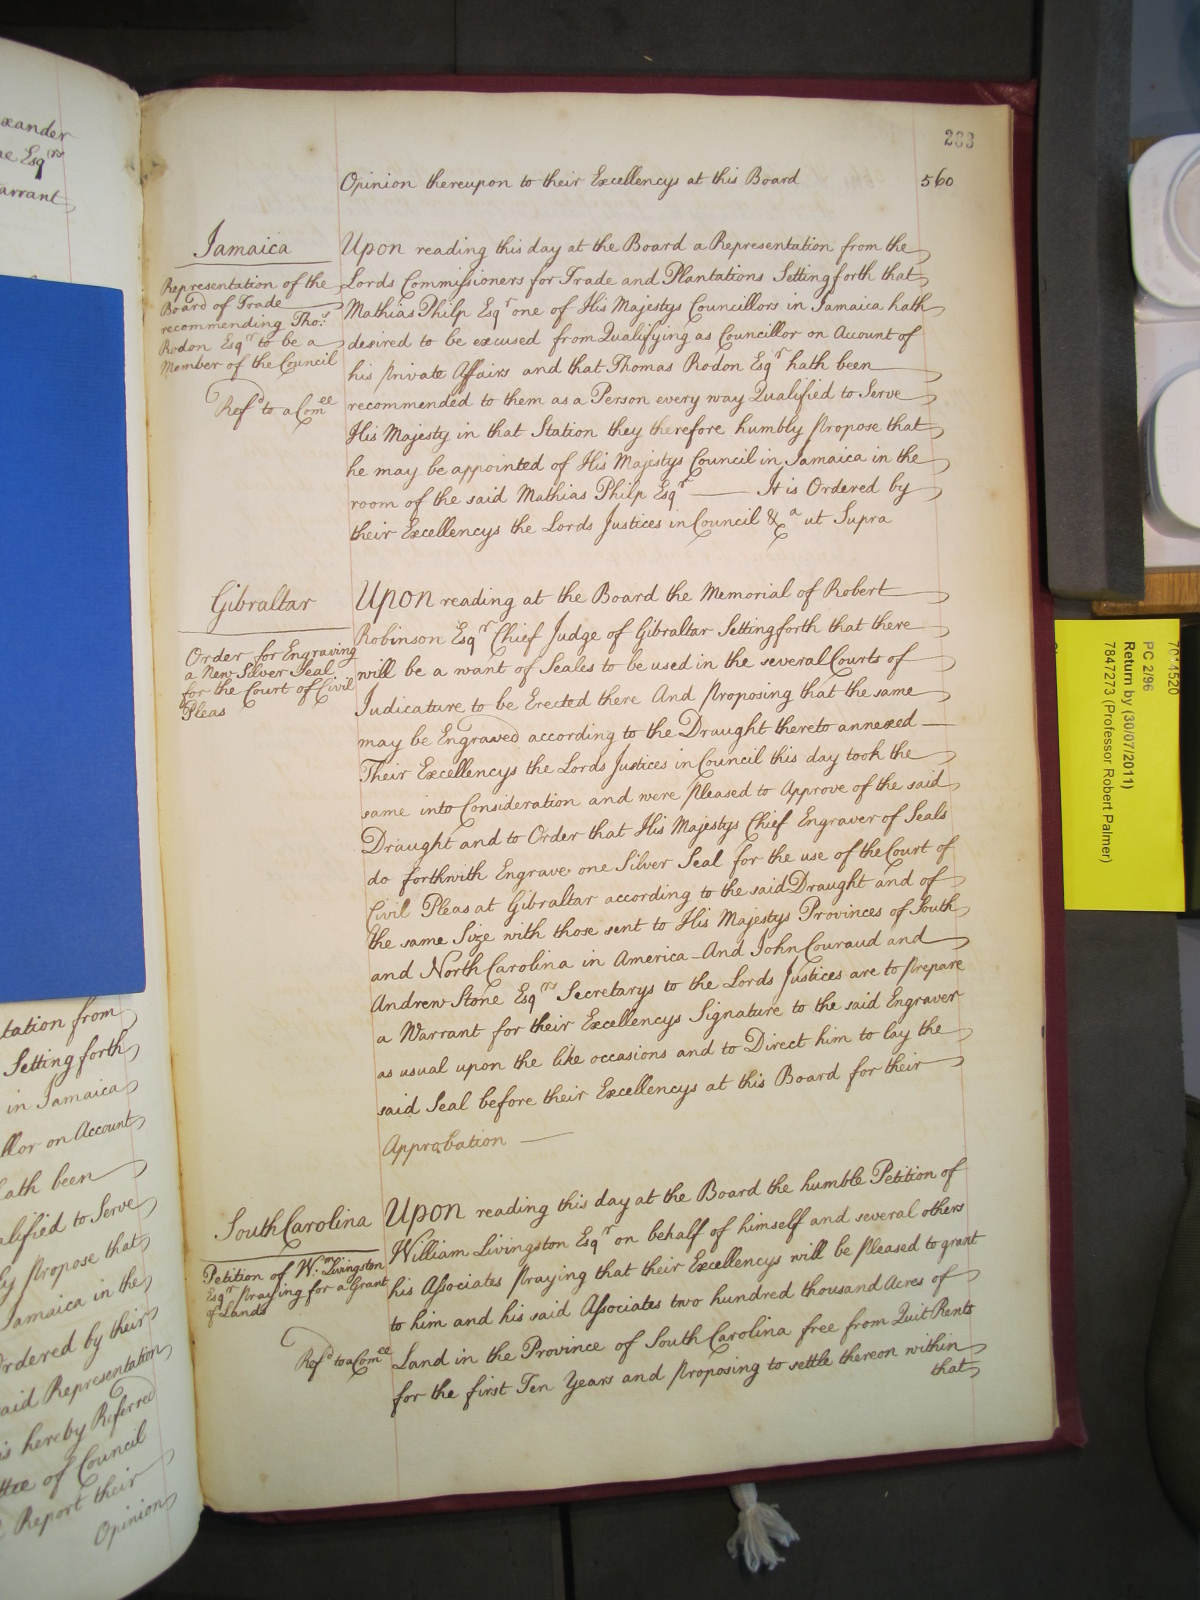 xander
ne Esqrs
arrant
tation from
Setting forth
in Jamaica
llor on Account
ath been
alified to Serve
ly propose that
Jamaica in the
Ordered by their
said Representation
is hereby Referred
ttee of Council
Report their
Opinion
283
560
Opinion thereupon to their Excellencys at this Board
Jamaica
Representation of the
Board of Trade
recommending Thos.
Rodon Esqr to be a
Member of the Council
Refd to a Comee
Upon reading this day at the Board a Representation from the
Lords Commissioners for Trade and Plantations Setting forth that
Mathias Philp Esqr one of His Majestys Councillors in Jamaica hath
desired to be excused from Qualifying as Councillor on Account of
his private Affairs and that Thomas Rodon Esqr hath been
recommended to them as a Person every way Qualified to Serve
His Majesty in that Station they therefore humbly propose that
he may be appointed of His Majestys Council in Jamaica in the
room of the said Mathias Philp Esqr — It is Ordered by
their Excellencys the Lords Justices in Council &ca ut Supra
Gibraltar
Order for Engraving
a New Silver Seal
for the Court of Civil
Pleas
Upon reading at the Board the Memorial of Robert
Robinson Esqr Chief Judge of Gibraltar Setting forth that there
will be a want of Seales to be used in the several Courts of
Judicature to be Erected there And proposing that the same
may be Engraved according to the Draught thereto annexed —
Their Excellencys the Lords Justices in Council this day took the
same into Consideration and were pleased to Approve of the said
Draught and to Order that His Majestys Chief Engraver of Seals
do forthwith Engrave one Silver Seal for the use of the Court of
Civil Pleas at Gibraltar according to the said Draught and of
the same Size with those sent to His Majestys Provinces of South
and North Carolina in America - And John Couraud and
Andrew Stone Esqrs Secretarys to the Lords Justices are to prepare
a Warrant for their Excellencys Signature to the said Engraver
as usual upon the like occasions and to Direct him to lay the
said Seal before their Excellencys at this Board for their
Approbation —
South Carolina
Petition of Wm. Livingston
Esqr praying for a Grant
of Lands
Refd to a Comee
Upon reading this day at the Board the humble Petition of
William Livingston Esqr on behalf of himself and several others
his Associates praying that their Excellencys will be pleased to grant
to him and his said Associates two hundred thousand Acres of
Land in the Province of South Carolina free from Quit Rents
for the first Ten Years and proposing to settle thereon within
that
PC 2/96
Return by (30/07/2011)
7847273 (Professor Robert Palmer)